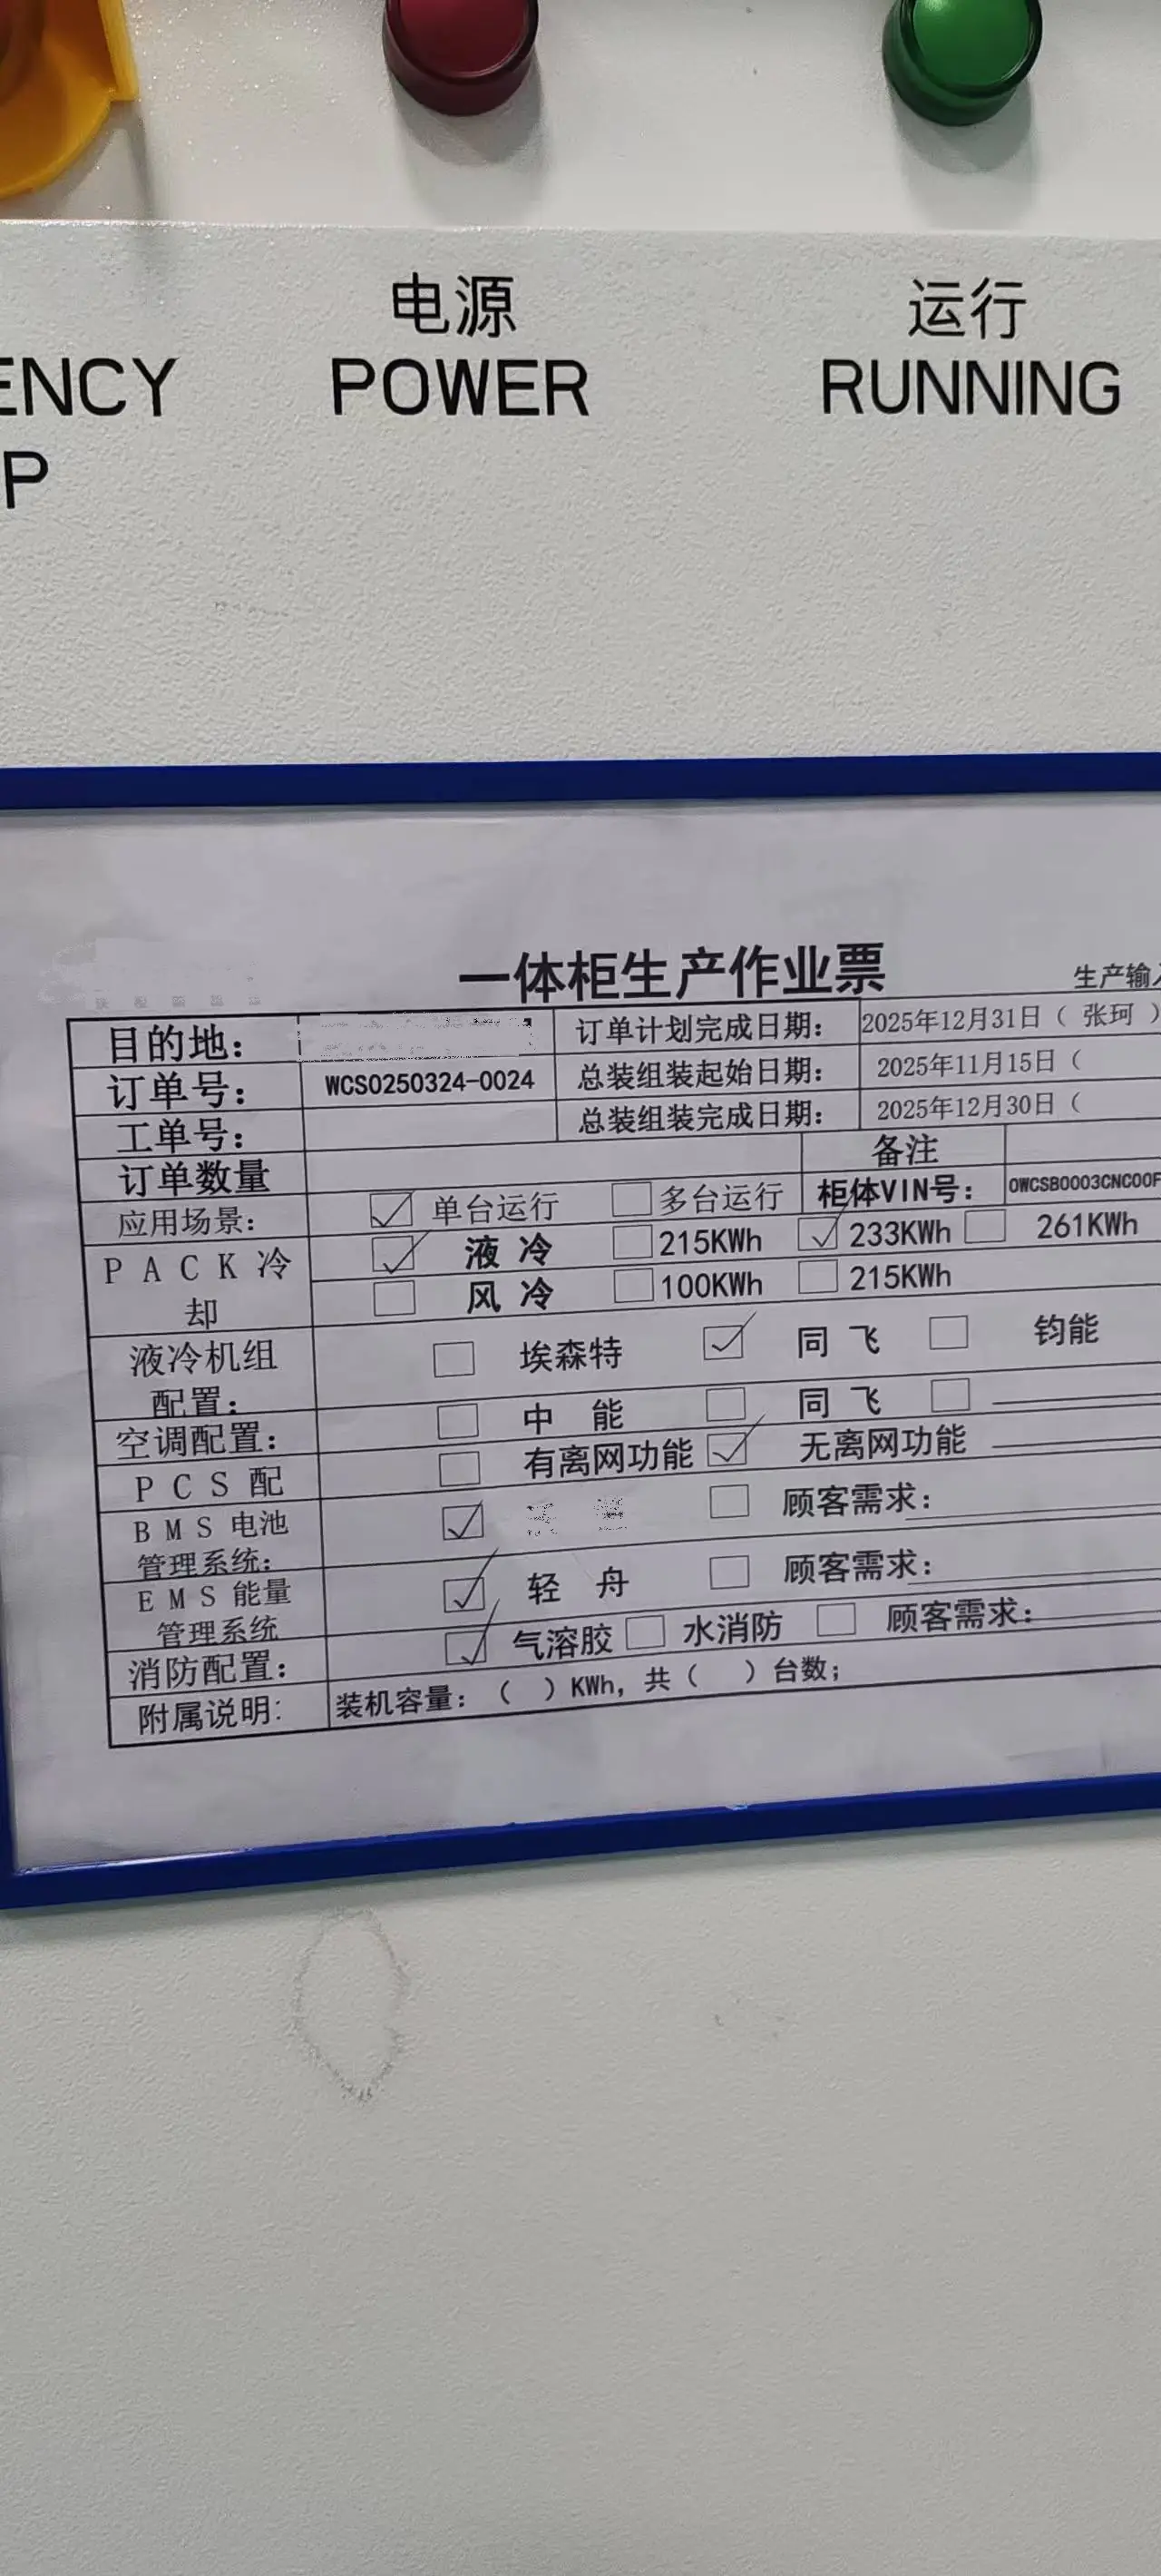 电源
运行
ENCY
POWER
RUNNING
P
一体柜生产作业票
生产输入
目的地:
订单计划完成日期:
2025年12月31日( 张珂 )
订单号:
WCS0250324-0024
总装组装起始日期:
2025年11月15日(
工单号:
总装组装完成日期:
2025年12月30日(
订单数量
备注
应用场景:
☑ 单台运行
☐ 多台运行
柜体VIN号:
OWCSB0003CNC00F
PACK冷却
☑ 液冷
☐ 215KWh
☑ 233KWh
☐ 261KWh
☐ 风冷
☐ 100KWh
☐ 215KWh
液冷机组配置:
☐ 埃森特
☑ 同飞
☐ 钧能
空调配置:
☐ 中能
☐ 同飞
☐
PCS配
☐ 有离网功能
☑ 无离网功能
BMS电池管理系统:
☑
☐ 顾客需求:
EMS能量管理系统
☑ 轻舟
☐ 顾客需求:
消防配置:
☑ 气溶胶
☐ 水消防
☐ 顾客需求:
附属说明:
装机容量:( )KWh,共( )台数;